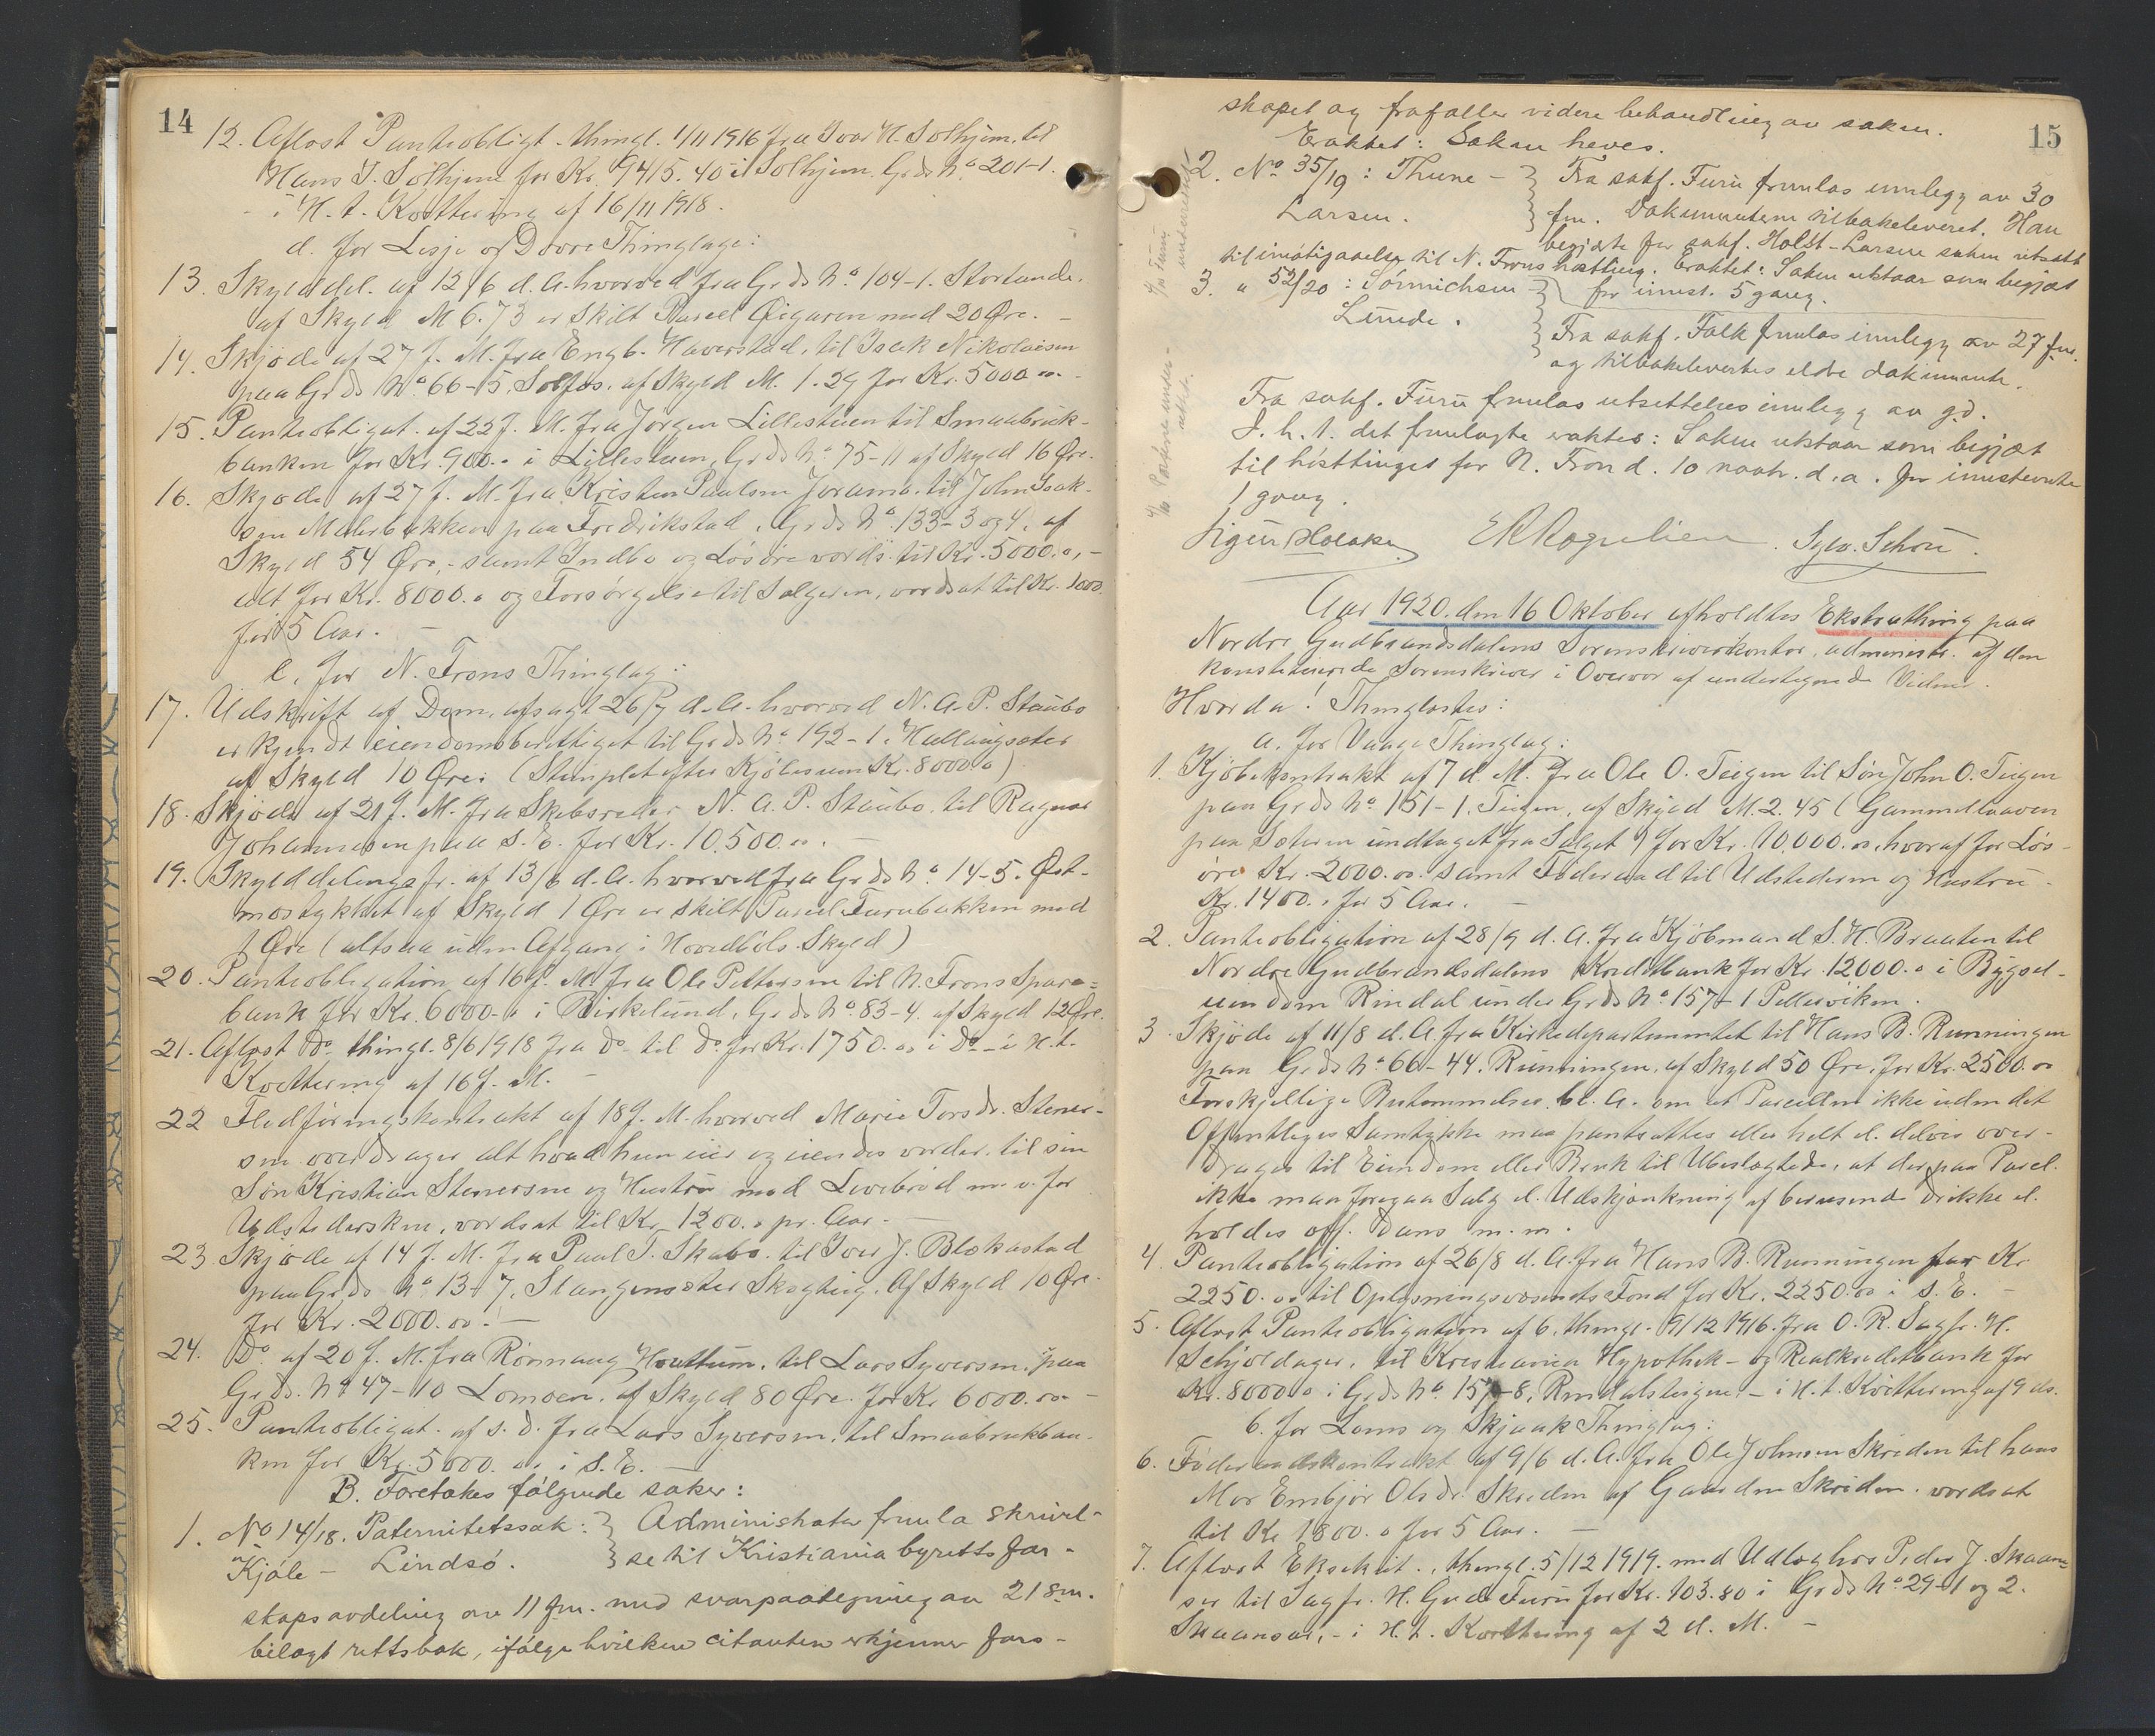 14
12. Aflæst Panteobligt. thingl. 1/11 1916 fra Ivar H. Solhjem, til
Hans I. Solhjem for Kr. 9415.40 i Solhjem. Grds No. 201-1.
- i H. t. Kvittering af 16/11 1918.
d. for Lesje og Dovre Thinglage:
13. Skylddel. af 12/6 d. A. hvorved fra Grds No. 104-1. Stortunde.
af Skyld M 6.73 er skilt Parcel Øigaren med 20 Øre. -
14. Skjøde af 27 f. M. fra Engb. Haverstad, til Isak Nikolaisen
paa Grds No. 66-5, Solfos, af Skyld M. 1.29 for Kr. 5000.00. -
15. Panteobligat. af 22 f. M. fra Jørgen Lillestuen til Smaabruk-
banken for Kr. 900.00 i Lillestuen, Grds No. 75-11 af Skyld 16 Øre.
16. Skjøde af 27 f. M. fra Kristen Paulsen Joramo, til John Isak-
sen Mælerbakken paa Fredrikstad, Grds No. 133-3 og 4, af
Skyld 54 Øre, - samt Indbo og Løsøre værds. til Kr. 5000.00, -
alt for Kr. 8000.00 og Forsørgelse til Selgeren, værdsat til Kr. 1000
for 5 Aar. -
e. for N. Frons Thinglag:
17. Udskrift af Dom, afsagt 26/7 d. A. hvorved N. A. P. Staubo
er kjendt eiendomsberettiget til Grds No. 192-1. Hattingsæter
af Skyld 10 Øre: (Stemplet efter Kjøbesum Kr. 8000.00)
18. Skjøde af 21 f. M. fra Skibsreder N. A. P. Staubo, til Ragnar
Johannesen paa s. E. for Kr. 10.500.00. -
19. Skylddelingsfr. af 13/6 d. A. hvorved fra Grds No. 14-5. Øst-
mostykket af Skyld 1 Øre er skilt Parcel Furubakken med
1 Øre (altsaa uden Afgang i Hovedbøls Skyld)
20. Panteobligation af 16 f. M. fra Ole Pettersen til N. Frons Spare=
bank for Kr. 6000.00 i Birkelund, Grds No. 83-4. af Skyld 12 Øre.
21. Aflæst Do. thingl. 8/6 1918 fra Do. til Do. for Kr. 1750.00 i Do. - i H. t.
Kvittering af 16 f. M. -
22 Fledføringskontrakt af 18 f. M. hvorved Marie Torsdr. Stener-
sen overdrager alt hvad hun eier og eiendes vorder, til sin
Søn Kristian Stenersen og Hustru mod Levebrød m. v. for
Udstedersken, værdsat til Kr. 1200.00 pr. Aar. -
23. Skjøde af 14 f. M. fra Paul T. Skabo, til Iver J. Blekastad
paa Grds No. 13-7, Slangensæter Skogteig. Af Skyld 10 Øre.
for Kr. 2000.00. -
24. Do. af 20 f. M. fra Rønnaug Hvattum, til Lars Syversen, paa
Grds. No. 47-10 Lomoen, af Skyld 80 Øre. for Kr. 6000.00 -
25. Panteobligat. af s. D. fra Lars Syversen, til Smaabrukban-
ken for Kr. 5000.00 i s. E. -
B. Foretokes følgende saker:
1. No 14/18. Paternitetssak: } Administrator fremla skrivel-
Kjøle - Lindsø. } se til Kristiania byretts far-
skapsavdeling av 11 fm. med svarpaategning av 21 s.m.
bilagt rettsbok, ifølge hvilken citanten erkjenner fars-
15
skapet og frafaller videre behandling av saken.
Eraktet: Saken heves.
2. No 35/19: Thune - } Fra sakf. Furu fremlas innlegg av 30
Larsen. } fm. Dokumentene tilbakeleveret. Han
begjærte for sakf. Holst-Larsen saken utsatt
til imøtegaaelse til N. Frons høstting. Eraktet: Saken utstaar som begjært
3. " 52/20: Sørmichsen - } for innst. 5 gang.
Lunde. } Fra sakf. Falk fremlas innlegg av 27 fm.
og tilbakelevertes eldre dokumenter.
Fra sakf. Furu fremlas utsettelsesinnlegg av gd.
I. h. t. det fremlagte eraktes: Saken utstaar som begjært
til høsttinget for N. Fron d. 10 novbr. d. a. for innstevnte
1 gang.
Sylv. Schou.
Aar 1920. den 16 Oktober afholdtes Ekstrathing paa
Nordre Gudbrandsdalens Sorenskriverkontor, administr. af den
konstituerede Sorenskriver i Overvær af undertegnede Vidner.
Hvorda! Thinglæstes:
a. for Vaage Thinglag:
1. Kjøbekontrakt af 7 d. M. fra Ole O. Teigen til Søn John O. Teigen
paa Grds No. 151-1. Teigen, af Skyld M. 2.45 (Gammellaaven
paa Sæteren undtaget fra Salget) for Kr. 10,000.00, hvoraf for Løs-
øre Kr. 2000.00. samt Føderaad til Udstederen og Hustru -
Kr. 1400.00 for 5 Aar. -
2. Panteobligation af 28/9 d. A. fra Kjøbmand S. H. Braaten til
Nordre Gudbrandsdalens Kreditbank for Kr. 12000.00 i Bygsel-
eiendom Rindal under Grds No. 157-1 Pellesviken.
3. Skjøde af 11/8 d. A. fra Kirkedepartementet til Hans B. Runningen
paa Grds No. 66-44. Runningen, af Skyld 50 Øre, for Kr. 2500.00
Forskjellige Bestemmelser, bl. A. om at Parcellen ikke uden det
Offentliges Samtykke maa pantsættes eller helt el. delvis over-
drages til Eiendom eller Bruk til Ubeslægtede, at der paa Parcel.
ikke maa foregaa Salg el. Udskjænkning af berusende Drikke el.
holdes off. Dans m. m.
4. Panteobligation af 26/8 d. A. fra Hans B. Runningen for Kr.
2250.00 til Oplysningsvæsenets Fond for Kr. 2250.00 i s. E. -
5. Aflæst Panteobligation af 6, thingl. 9/12 1916. fra O. R. Sagfr. H.
Schjoldager, til Kristiania Hypothek- og Realkreditbank for
Kr. 8000.00 i Grds No. 157-8, Rindalsteigene. - i H. t. Kvittering af 9 ds.
b. for Loms og Skjaak Thinglag:
6. Føderaadskontrakt af 9/6 d. A. fra Ole Johnsen Skriden til hans
Mor Embjør Olsdr. Skriden af Gaarden Skriden. værdsat
til Kr. 1800.00 for 5 Aar. -
7. Aflæst Eksekut., thingl. 5/12 1919. med Udlæg hos Peder J. Skaan-
sar til Sagfr. H. Gude Furu for Kr. 103.80 i Grds No. 29-1 og 2.
Skaansar, - i H. t. Kvittering af 2 d. M. -